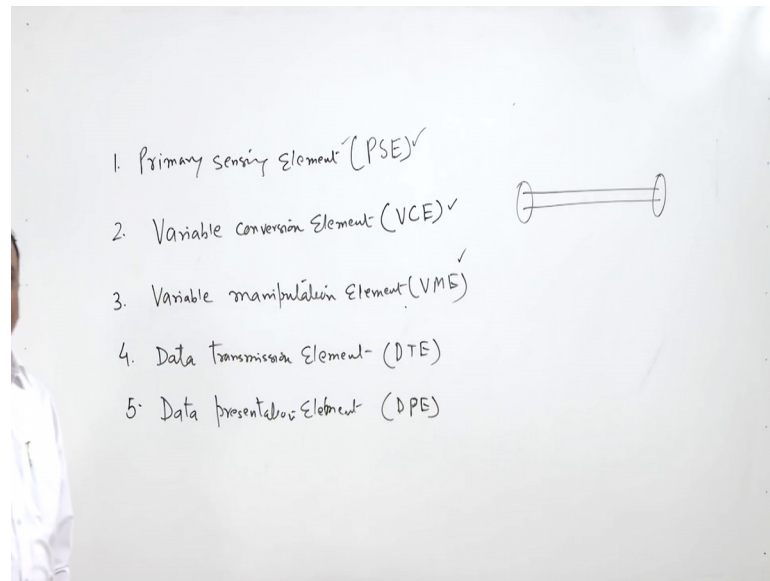 1. Primary sensing Element (PSE)✓
2. Variable conversion Element (VCE)✓
3. Variable manipulation Element (VME)✓
4. Data Transmission Element (DTE)
5. Data presentation Element (DPE)